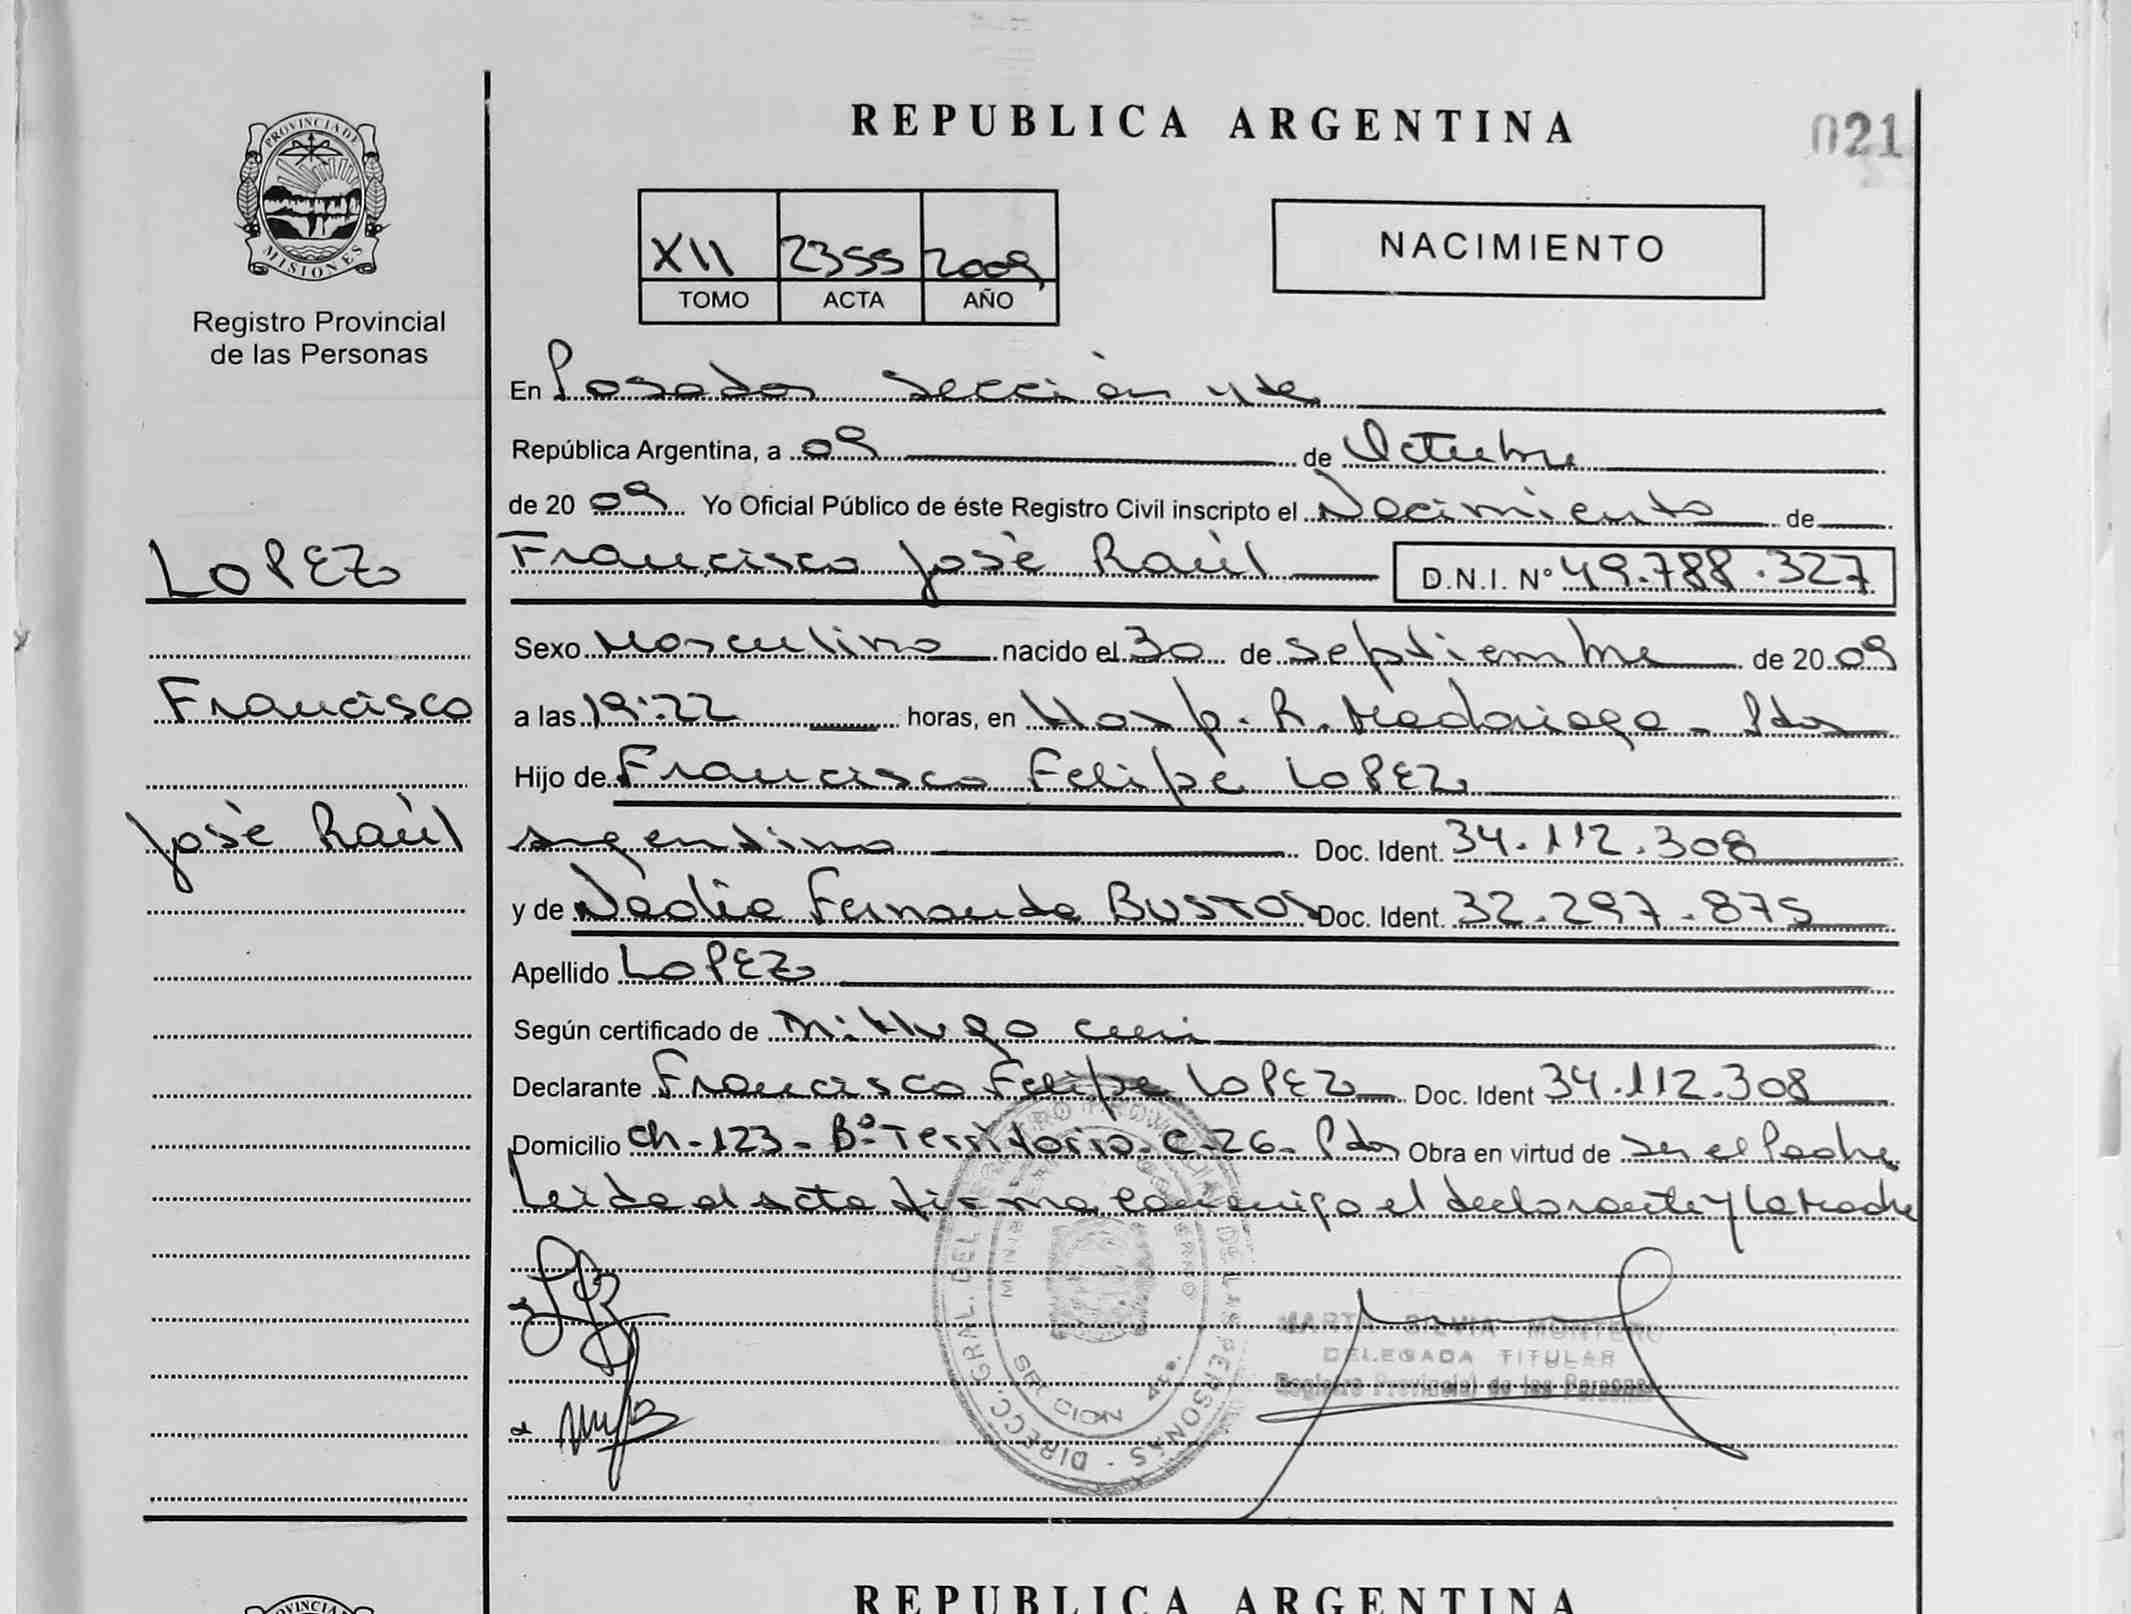 REPUBLICA ARGENTINA
021
PROVINCIA DE
MISIONES
Registro Provincial
de las Personas
XII 2355 2009
TOMO ACTA AÑO
NACIMIENTO
En Posadas Sección 4ta
República Argentina, a 09 de Octubre
de 20 09 Yo Oficial Público de éste Registro Civil inscripto el Nacimiento de
LOPEZ
Francisco José Raúl D.N.I. Nº 49.788.327
Sexo Masculino nacido el 30 de Septiembre de 20 09
Francisco
a las 19:22 horas, en Hosp. R. Madariaga - Pdas
Hijo de Francisco Felipe LOPEZ
José Raúl
Argentino Doc. Ident. 34.112.308
y de Nadia Fernanda BUSTOS Doc. Ident. 32.297.875
Apellido LOPEZ
Según certificado de
Declarante Francisco Felipe LOPEZ Doc. Ident 34.112.308
Domicilio Ch-123-Bº Territorio-C-26-Pdas Obra en virtud de Ser el Padre
Leida el acta firma conmigo el declarante y la Madre
DIRECC. GRAL. DEL REGISTRO PROVINCIAL DE LAS PERSONAS
SECCION 4ta.
MARTA SILVIA MONTERO
DELEGADA TITULAR
Registro Provincial de las Personas
REPUBLICA ARGENTINA
PROVINCIA